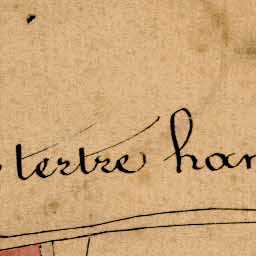 tertre han